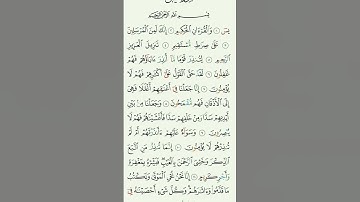 بِسْمِ اللَّهِ الرَّحْمَٰنِ الرَّحِيمِ
يسٓ ١ وَالْقُرْءَانِ الْحَكِيمِ ٢ إِنَّكَ لَمِنَ الْمُرْسَلِينَ
٣ عَلَىٰ صِرَٰطٍ مُّسْتَقِيمٍ ٤ تَنزِيلَ الْعَزِيزِ
الرَّحِيمِ ٥ لِتُنذِرَ قَوْمًا مَّآ أُنذِرَ ءَابَآؤُهُمْ فَهُمْ
غَٰفِلُونَ ٦ لَقَدْ حَقَّ الْقَوْلُ عَلَىٰٓ أَكْثَرِهِمْ فَهُمْ لَا
يُؤْمِنُونَ ٧ إِنَّا جَعَلْنَا فِىٓ أَعْنَٰقِهِمْ أَغْلَٰلًا فَهِىَ
إِلَى الْأَذْقَانِ فَهُم مُّقْمَحُونَ ٨ وَجَعَلْنَا مِنۢ بَيْنِ
أَيْدِيهِمْ سَدًّا وَمِنْ خَلْفِهِمْ سَدًّا فَأَغْشَيْنَٰهُمْ فَهُمْ لَا
يُبْصِرُونَ ٩ وَسَوَآءٌ عَلَيْهِمْ ءَأَنذَرْتَهُمْ أَمْ لَمْ
تُنذِرْهُمْ لَا يُؤْمِنُونَ ١٠ إِنَّمَا تُنذِرُ مَنِ اتَّبَعَ
الذِّكْرَ وَخَشِىَ الرَّحْمَٰنَ بِالْغَيْبِ فَبَشِّرْهُ بِمَغْفِرَةٍ
وَأَجْرٍ كَرِيمٍ ١١ إِنَّا نَحْنُ نُحْىِ الْمَوْتَىٰ وَنَكْتُبُ
مَا قَدَّمُوا۟ وَءَاثَٰرَهُمْ وَكُلَّ شَىْءٍ أَحْصَيْنَٰهُ فِىٓ